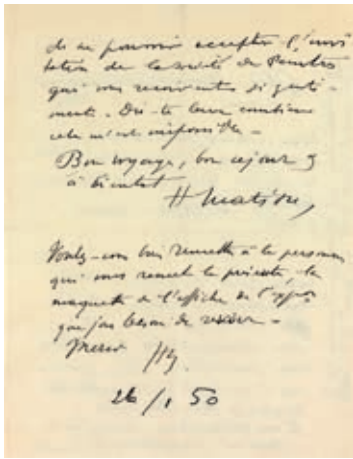 de ne pouvoir accepter l'invi
tation de la société de Peintres
qui vous recevront si genti-
ment. Dis-te leur combien
cela m'est impossible -
Bon voyage, bon séjour &
à bientôt
H Matisse,
Voulez-vous bien remettre à la personne
qui vous remet la présente, la
maquette de l'affiche de l'expos
que j'ai besoin de revoir -
Merci HM.
26/1 50